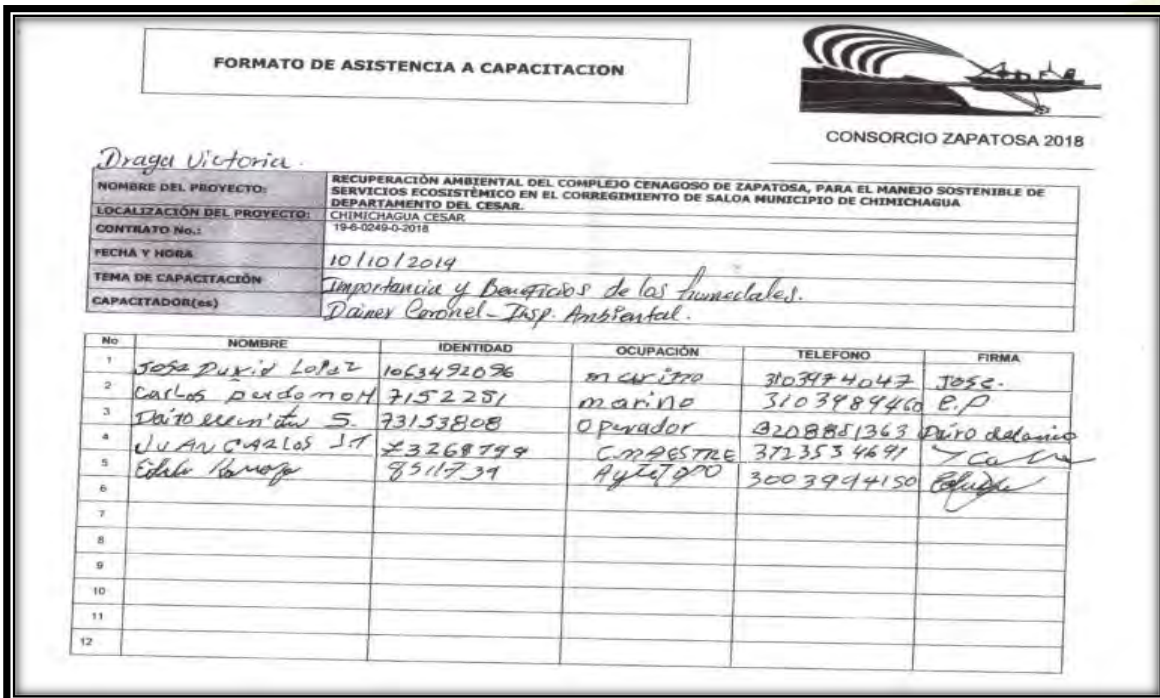 FORMATO DE ASISTENCIA A CAPACITACION
CONSORCIO ZAPATOSA 2018
Draga Victoria.
NOMBRE DEL PROYECTO: RECUPERACIÓN AMBIENTAL DEL COMPLEJO CENAGOSO DE ZAPATOSA, PARA EL MANEJO SOSTENIBLE DE
SERVICIOS ECOSISTÈMICO EN EL CORREGIMIENTO DE SALOA MUNICIPIO DE CHIMICHAGUA
DEPARTAMENTO DEL CESAR.
LOCALIZACIÓN DEL PROYECTO: CHIMICHAGUA CESAR
CONTRATO No.: 19-6-0249-0-2018
FECHA Y HORA 10/10/2019
TEMA DE CAPACITACIÓN Importancia y Beneficios de los humedales.
CAPACITADOR(es) Dainer Coronel - Insp. Ambiental.
No NOMBRE IDENTIDAD OCUPACIÓN TELEFONO FIRMA
1 Jose David Lopez 1063492096 marino 3103974047 Jose.
2 Carlos perdomo H 7152251 marino 3103989460 C.P
3 Dairo S. 73153808 Operador 3208851363 Dairo
4 JUAN CARLOS J.T 73268799 C.MAESTRE 3723534691
5 8511739 3003994150
6
7
8
9
10
11
12